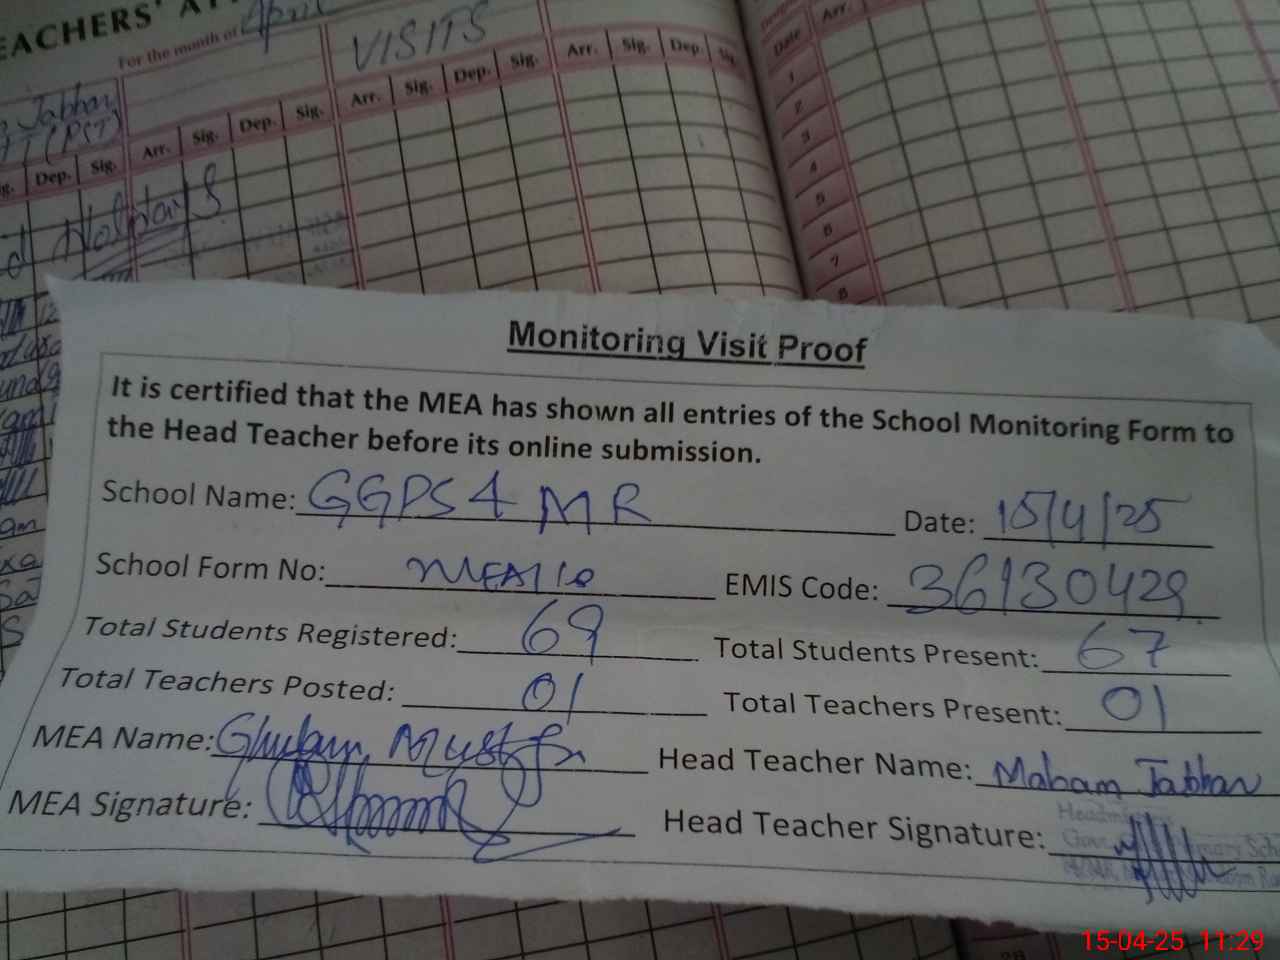 For the month of April
VISITS
Jabhan
(PST)
Dep. Sig. Arr. Sig. Dep. Sig. Arr. Sig. Dep. Sig. Arr. Sig. Dep. Sig.
Date Arr.
1
2
3
4
5
6
7
8
Monitoring Visit Proof
It is certified that the MEA has shown all entries of the School Monitoring Form to
the Head Teacher before its online submission.
School Name: GGPS 4 MR Date: 15/4/25
School Form No: MEA/10 EMIS Code: 36130429
Total Students Registered: 69 Total Students Present: 67
Total Teachers Posted: 01 Total Teachers Present: 01
MEA Name: Ghulam Mustafa Head Teacher Name: Maham Jabhan
MEA Signature: Head Teacher Signature:
15-04-25 11:29